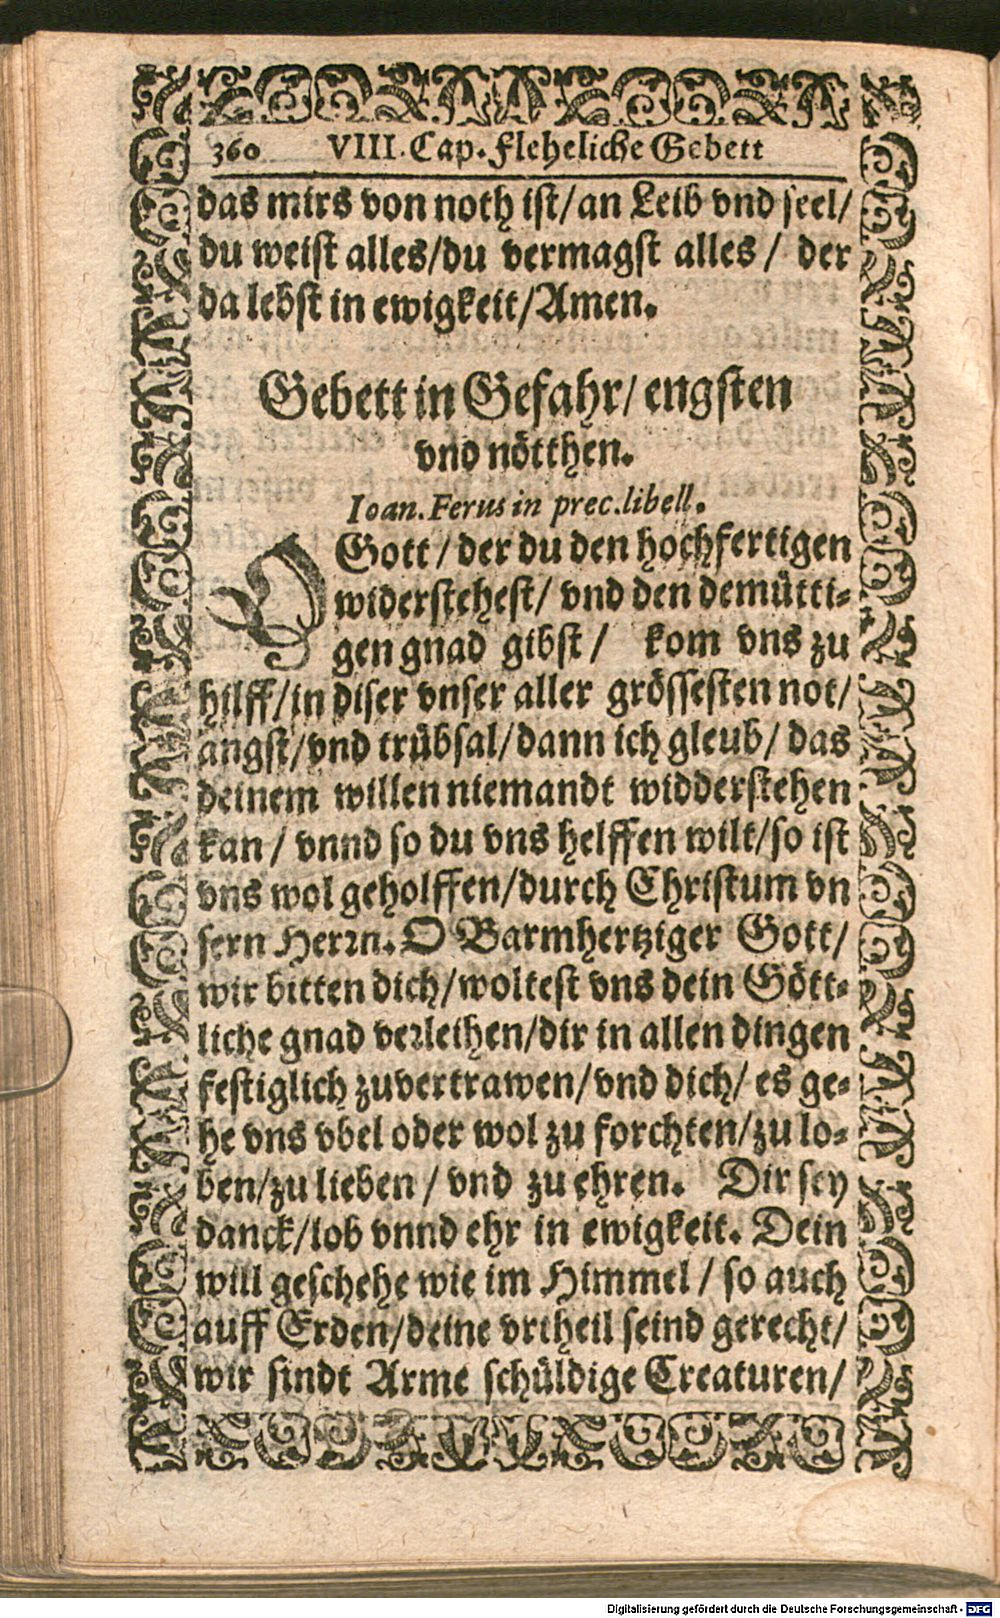 360 VIII. Cap. Fleheliche Gebett
das mirs von noth ist/an Leib vnd seel/
du weist alles/du vermagst alles/ der
da lebst in ewigkeit/Amen.
Gebett in Gefahr/ engsten
vnd nötthen.
Ioan. Ferus in prec. libell.
O Gott/ der du den hochfertigen
widerstehest/ vnd den demütti-
gen gnad gibst/ kom vns zu
hilff/in diser vnser aller grössesten not/
angst/vnd trübsal/dann ich gleub/ das
deinem willen niemandt widderstehen
kan/ vnnd so du vns helffen wilt/so ist
vns wol geholffen/durch Christum vn
sern Herrn. O Barmhertziger Gott/
wir bitten dich/woltest vns dein Gött-
liche gnad verleihen/dir in allen dingen
festiglich zuvertrawen/vnd dich/ es ge-
he vns vbel oder wol zu forchten/zu lo-
ben/zu lieben/ vnd zu ehren. Dir sey
danck/lob vnnd ehr in ewigkeit. Dein
will geschehe wie im Himmel/ so auch
auff Erden/deine vrtheil seind gerecht/
wir sindt Arme schüldige Creaturen/
Digitalisierung gefördert durch die Deutsche Forschungsgemeinschaft - DFG